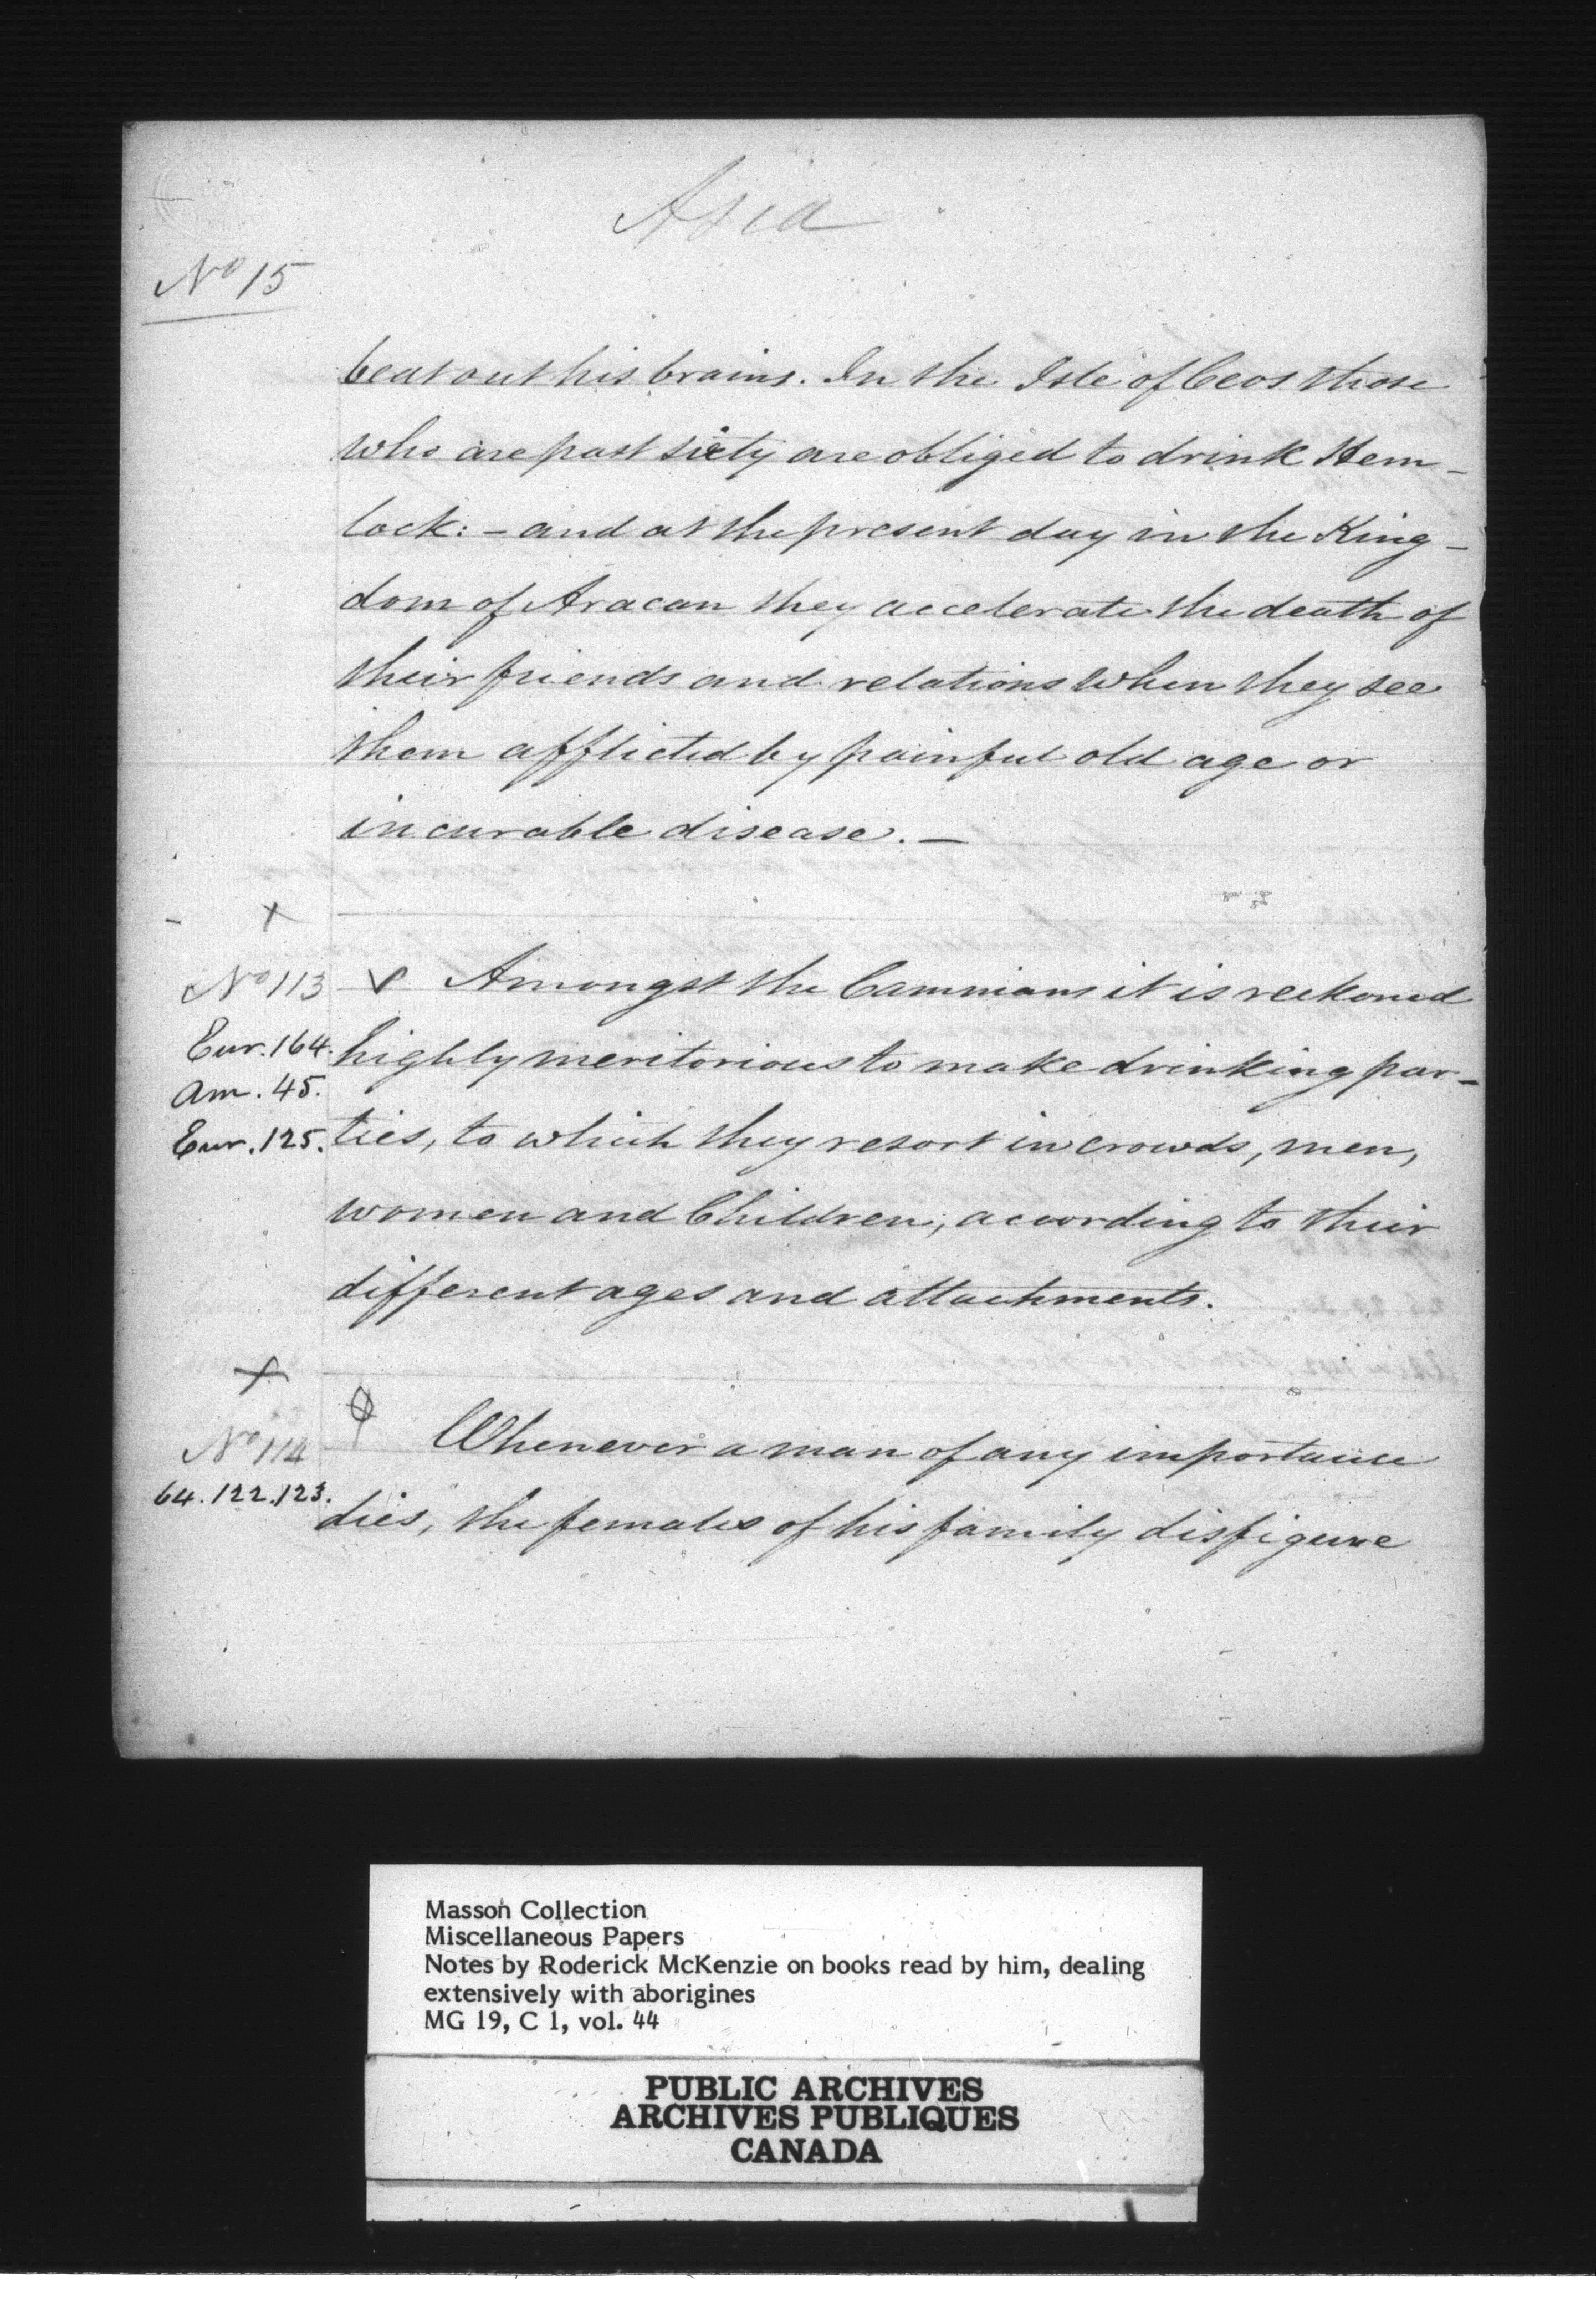 Asia
No 15
beat out his brains. In the Isle of Ceos those
who are past sixty are obliged to drink Hem-
lock: - and at the present day in the King-
dom of Aracan they accelerate the death of
their friends and relations when they see
them afflicted by painful old age or
incurable disease. -
x
No 113 Amongst the Carmians it is reckoned
Eur. 164. highly meritorious to make drinking par-
Am. 45.
Eur. 125. ties, to which they resort in crowds, men,
women and Children, according to their
different ages and attachments.
x
No 114 Whenever a man of any importance
64. 122. 123.
dies, the females of his family disfigure
Masson Collection
Miscellaneous Papers
Notes by Roderick McKenzie on books read by him, dealing
extensively with aborigines
MG 19, C 1, vol. 44
PUBLIC ARCHIVES
ARCHIVES PUBLIQUES
CANADA